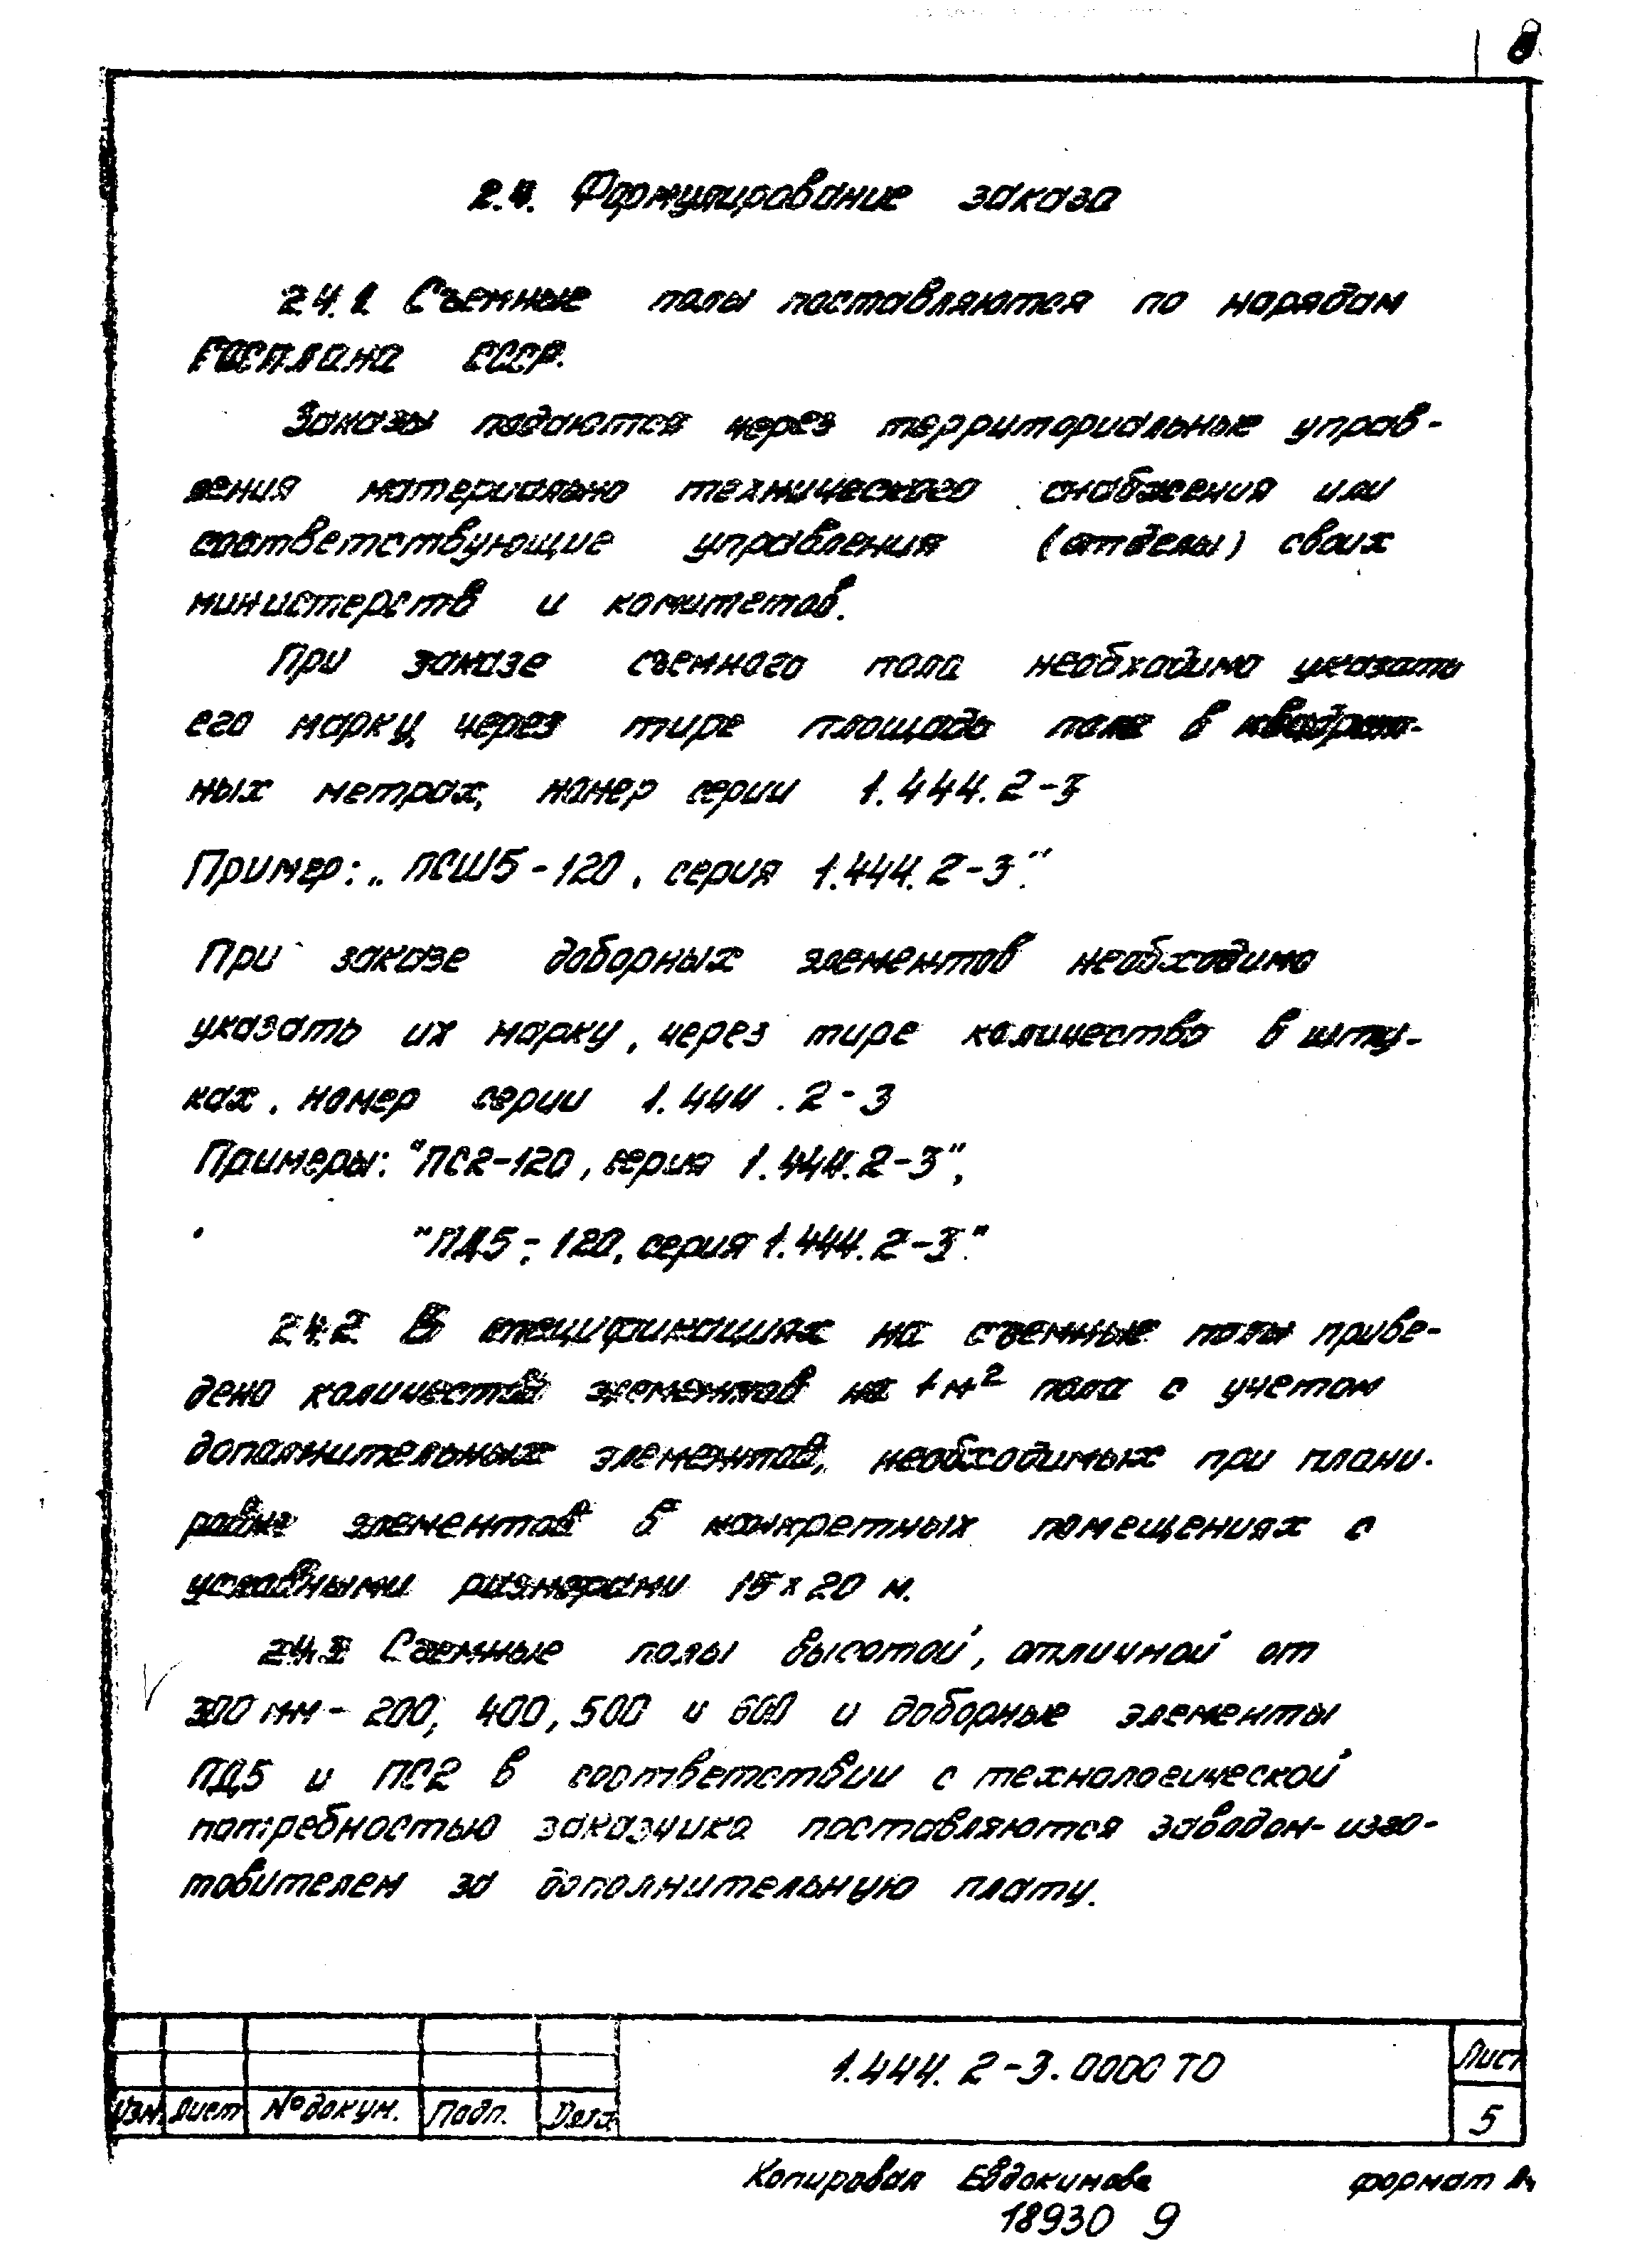 8
2.4. Формулирование заказа
2.4.1 Съемные полы поставляются по нарядам
Госплана СССР.
Заказы подаются через территориальные управ-
ления материально технического снабжения или
соответствующие управления (отделы) своих
министерств и комитетов.
При заказе съемного пола необходимо указать
его марку, через тире площадь пола в квадрат-
ных метрах, номер серии 1.444.2-3
Пример: „ПСШ5-120, серия 1.444.2-3".
При заказе доборных элементов необходимо
указать их марку, через тире количество в шту-
ках, номер серии 1.444.2-3
Примеры: "ПС2-120, серия 1.444.2-3",
"ПД5-120, серия 1.444.2-3."
2.4.2 В спецификациях на съемные полы приве-
дено количество элементов на 1м² пола с учетом
дополнительных элементов, необходимых при плани-
ровке элементов в конкретных помещениях с
условными размерами 15х20 м.
2.4.3 Съемные полы высотой, отличной от
300 мм - 200, 400, 500 и 600 и доборные элементы
ПД5 и ПС2 в соответствии с технологической
потребностью заказчика поставляются заводом-изго-
товителем за дополнительную плату.
1.444.2-3.0000 ТО
Лист
5
Изм. Лист № докум. Подп. Дата
Копировал Евдокимова формат А4
18930 9